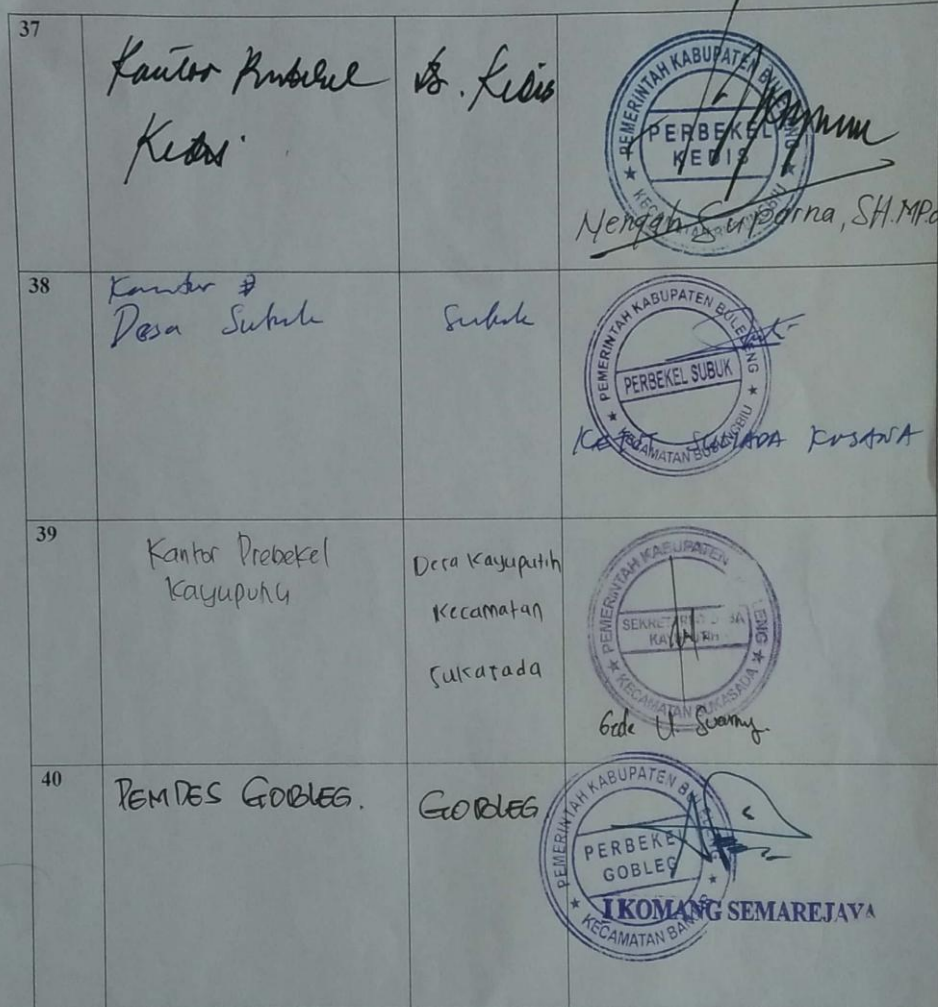 37
Kantor Prebekel
Kedis
Ds. Kedis
PEMERINTAH KABUPATEN BULELENG
PERBEKEL
KEDIS
Nengah Suparna, SH.MPd
38
Kantor
Desa Subuk
Subuk
PEMERINTAH KABUPATEN BULELENG
PERBEKEL SUBUK
KECAMATAN BUSUNGBIU
KETUT KUSANA
39
Kantor Prebekel
Kayuputih
Desa Kayuputih
Kecamatan
Sukasada
PEMERINTAH KABUPATEN
SEKRETARIS DESA
KAYUPUTIH
KECAMATAN SUKASADA
Gede U.
40
PEMDES GOBLEG.
GOBLEG
PEMERINTAH KABUPATEN BULELENG
PERBEKEL
GOBLEG
KECAMATAN BANJAR
I KOMANG SEMAREJAYA